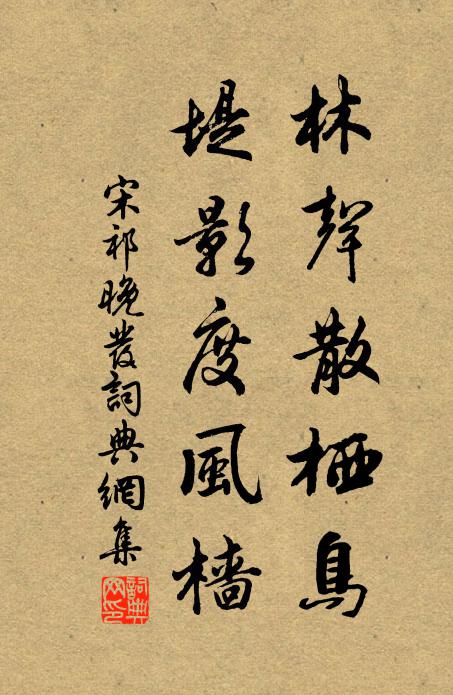 林聲散栖鳥
堤影度風檣
宋祁晚發詞典網集
詞典網印